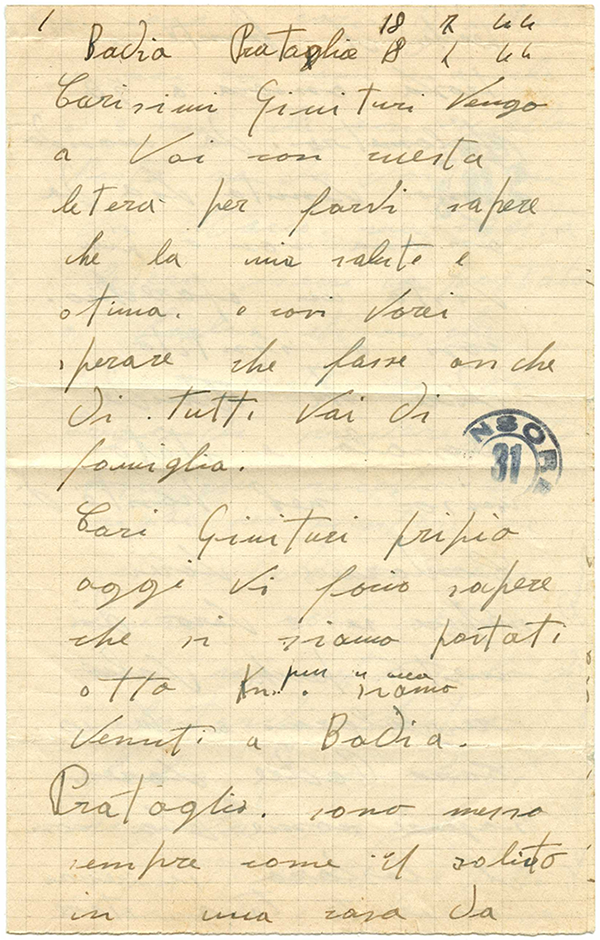 1
18 7 44
Badia Prataglia 18 7 44
Carisimi Ginituri Vengo
a Voi con cuesta
letera per farvi sapere
che la mia salute e
otima. e covi Vorei
sperare che fasse anche
Di tutti Voi di
famiglia.
NSORA
31
Cari Ginituri pripio
oggi Vi facio sapere
che si siamo portati
otto Km. piu siamo
Venuti a Badia.
Prataglia. sono messo
sempre come il solito
in una casa da